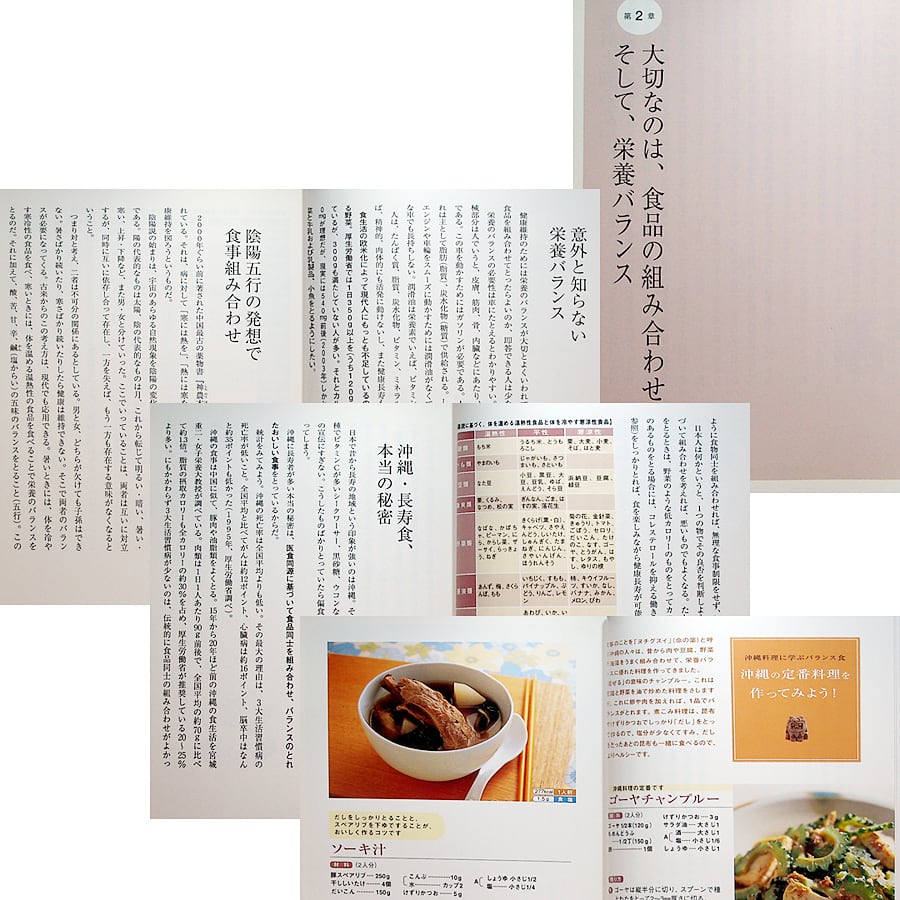 第2章
大切なのは、食品の組み合わせ
そして、栄養バランス
意外と知らない
栄養バランス
健康維持のためには栄養のバランスが大切とよくいわれ
食品を組み合わせてとったらよいのか、即答できる人は少
栄養のバランスの必要性は車にたとえるとわかりやすい。
械部分は人でいうと、皮膚、筋肉、骨、内臓などにあたり、
である。この車を動かすためにはガソリンが必要である。
れは主として脂肪(脂質)、炭水化物(糖質)で供給される。
エンジンや車輪をスムーズに動かすためには潤滑油がなくて
な車でも長持ちしない。潤滑油は栄養素でいえば、ビタミン
人は、たんぱく質、脂質、炭水化物、ビタミン、ミネラ
ば、精神的、肉体的にも活発に動けないし、また健康長寿も
食生活の欧米化によって現代人にもっとも不足しているの
る野菜。厚生労働省では1日350g以上を(うち120g
ているが、300gも満たしていない人が多い。それとカル
0mgが理想だが、現実には540mg前後(2003年)しか
菜と牛乳および乳製品、小魚をとるようにしたい。
陰陽五行の発想で
食事組み合わせ
2000年ぐらい前に著された中国最古の薬物書『神農本
れている。それは、病に対して「寒には熱を」、「熱には寒を
康維持を図ろうというものだ。
陰陽説の始まりは、宇宙のあらゆる自然現象を陰陽の変
である。陽の代表的なものは太陽、陰の代表的なものは月、これから転じて明るい・暗い、暑い・
寒い、上昇・下降など、また男・女と分けていった。ここでいっていることは、両者は互いに対立
するが、同時に互いに依存し合って存在し、一方を失えば、もう一方も存在する意味がなくなると
いうこと。
つまり対と考え、二者は不可分の関係にあるとしている。男と女、どちらが欠けても子孫はでき
ない。暑さばかり続いたり、寒さばかり続いたりしたら健康は維持できない。そこで両者のバラン
スが必要になってくる。古来からのこの考え方は、現代でも応用できる。暑いときには、体を冷や
す寒冷性の食品を食べ、寒いときには、体を温める温熱性の食品を食べることで栄養のバランスを
とるのだ。それに加えて、酸、苦、甘、辛、鹹(塩からい)の五味のバランスをとること(五行)。この
ように食物同士を組み合わせれば、無理な食事制限をせず、
日本人は何かというと、一つの物でその良否を判断しよ
づいて組み合わせを考えれば、悪いものでもよくなる。た
をとるときは、野菜のような低カロリーのものをとってカ
のあるものをとる場合には、コレステロールを抑える働き
参照)をしっかりとれば、食を楽しみながら健康長寿が可能
説に基づく、体を温める温熱性食品と体を冷やす寒涼性食品】
温熱性
平性
寒涼性
もち米
うるち米、とうもろこし
粟、大麦、小麦、そば、はと麦
やまのいも
じゃがいも、さつまいも、さといも
なた豆
小豆、黒豆、大豆、豆乳、ゆば、えんどう、そら豆
浜納豆、豆腐、緑豆
栗、くるみ、なつめ、松の実
ぎんなん、ごま、はすの実、落花生
沖縄・長寿食、
本当の秘密
日本で昔から長寿の地域という印象が強いのは沖縄。そ
種でビタミンCが多いシークワーサー、黒砂糖、ウコンな
の宣伝にすぎない。こうしたものばかりとっていたら偏食
ってしまう。
沖縄に長寿者が多い本当の秘密は、医食同源に基づいて食品同士を組み合わせ、バランスのとれ
たおいしい食事をとっているからだ。
統計をみてみよう。沖縄の死亡率は全国平均よりも低い。その最大の理由は、3大生活習慣病の
死亡率が低いこと。全国平均と比べてがんは約12ポイント、心臓病は約16ポイント、脳卒中はなん
と約35ポイントも低かった(1995年、厚生労働省調べ)。
沖縄の食事は中国に似て、豚肉や油脂類をよくとる。15年から20年ほど前の沖縄の食生活を宮城
重二・女子栄養大教授が調べている。肉類は1日1人あたり90g前後で、全国平均の約70gに比べ
て約1.3倍。脂質の摂取カロリーも全カロリーの約30%を占め、厚生労働省が推奨している20〜25%
より多い。にもかかわらず3大生活習慣病が少ないのは、伝統的に食品同士の組み合わせがよかっ
277kcal 1人前
1.5g 食塩
だしをしっかりとることと、
スペアリブを下ゆですることが、
おいしく作るコツです
ソーキ汁
材料 (2人分)
豚スペアリブ…250g
干ししいたけ…4個
だいこん…150g
こんぶ…10g
水…カップ2
けずりかつお…5g
A しょうゆ 小さじ1/2
塩…小さじ1/4
事のことを「ヌチグスイ」(命の薬)と呼
沖縄の人々は、昔から肉や豆腐、野菜
海藻をうまく組み合わせて、栄養バラ
スに優れた料理を作ってきました。
混ぜる」の意味のチャンプルー。これは
腐と野菜を油で炒めた料理をさします
、これに豚や肉を加えれば、1品でバ
ンスがとれます。煮こみ料理は、昆布
やけずりかつおでしっかり「だし」をとっ
て作るので、塩分が少なくてすみ、だし
をとったあとの昆布も一緒に食べるので、
よりヘルシーです。
沖縄料理に学ぶバランス食
沖縄の定番料理を
作ってみよう!
沖縄料理の定番です
ゴーヤチャンプルー
材料 (2人分)
ゴーヤ 1/2本(120g)
もめんどうふ
…1/2丁(150g)
卵…1個
けずりかつお…3g
サラダ油…大さじ1
A 酒…大さじ1
塩…小さじ1/6
しょうゆ…小さじ1
作り方
1 ゴーヤは縦半分に切り、スプーンで種